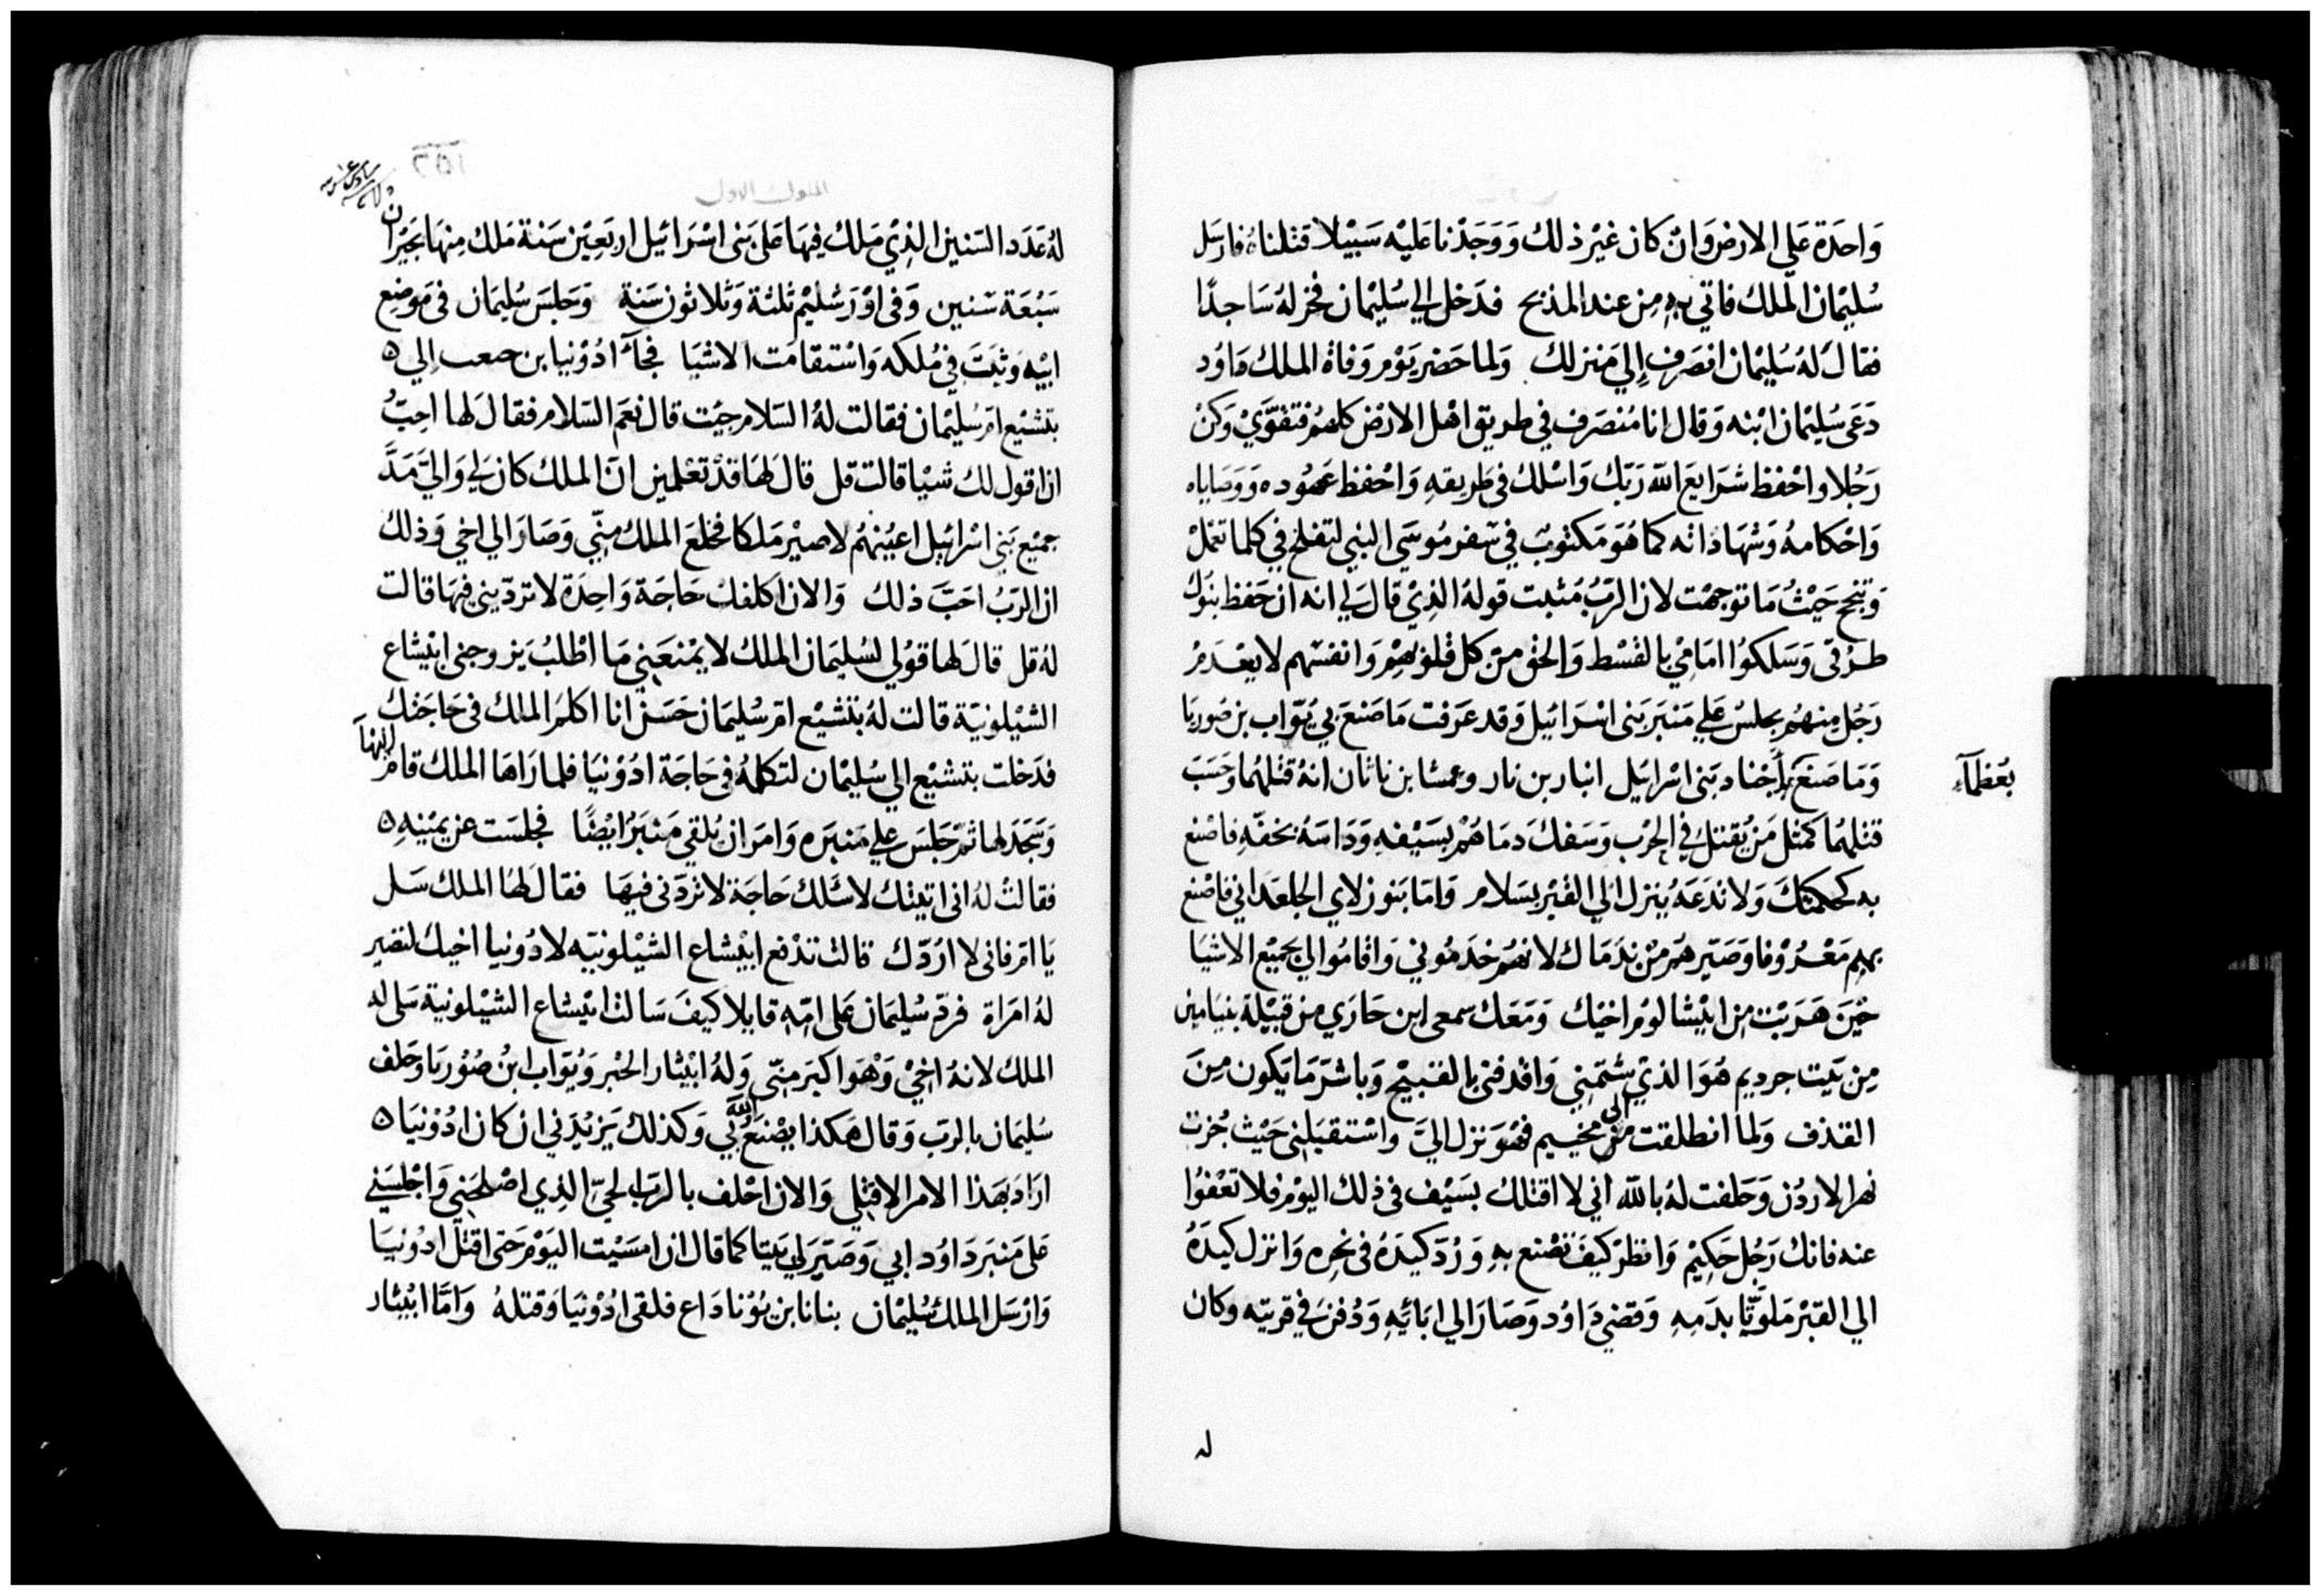 وَاحدَة عَلي الارض وَانْ كان غيْر ذلك وَوَجَدْنا عَليْه سَبيْلا قتلناهُ فارسَل
سُليْمان الملك فاتي بهِ مِن عند المذبح فدَخل الي سُليْمان فخر لهُ سَاجدًا
فقالَ لهُ سُليْمان انصَرف إلي مَنزلك ولما حَضر يَوْم وَفاة الملك داوُد
دَعَي سُليْمان ابْنه وَقال انا مُنصَرف في طريق اهْل الارْض كلهُم فتقوَّيْ وَكنْ
رَجُلا واحْفظ شرَايعَ الله رَبّك وَاسْلك في طَريقهِ وَاحْفظ عَهُوده وَوَصَاياه
وَاحْكامهُ وَشهَاداته كما هُوَ مَكتوبٌ في سفر مُوسَي النبي لتفلح في كلما تعْملْ
وَتنجح حَيْثُ مَا توجهْت لان الربّ مُثبت قولهُ الذيْ قال لي انه ان حَفظ بنوك
طرْقي وَسَلكوُا امَامِيْ بالقسْط وَالحق من كل قلوبهمْ وَانفسهم لا يعْدَمْ
رَجُل منهُم يجلسُ عَلي مَنبَر بَني اسْرَائيل وَقد عَرَفت مَا صَنعَ بي يُوَاب بن صُوريَا
وَمَا صَنعَ بأجْناد بَني اسْرائيل ابنار بن نار وعمشا بن ناتان انهُ قتلهُما وَحَسَبَ
بعُظمآء
قتلهُما كمثل مَن يُقتلُ في الحرْب وَسَفكَ دمَاهُمْ بسَيْفهِ وَدَاسَهُ بخفّهِ فاصْنع
به كحكمتكَ وَلا تدَعَهُ يُنزل الي القبْر بسَلام وَامَا بَنو زلاي الجلعَداني فاصْنع
بهم مَعْرُوْفا وَصَيّرهُم مِنْ ندَمَاك لانهُم خدَمُوني وَاقامُوا لي بجميْع الاشيَا
حيْنَ هَرَبْت مِن ابيْشالوُم اخيْك وَمَعَك سمعي ابن حَارَي من قبيْلة بنيَامين
مِن بَيت جرديم هُوَ الذيْ شتمَني وَاقْدفني بالقبيْح وَباشرّ مَا يَكون مِنَ
القذف وَلما انطلقت من الي مخيم فهُوَ نزل اليَّ وَاسْتقبَلني حَيْث جُزت
نهر الاردُن وَحَلفت لهُ بالله اني لا اقتلكُ بسَيْف في ذلك اليوْم فلا تعْفوُا
عنه فانك رَجُل حَكيْم وَانظرْ كيفَ تصْنع بهِ وَرُدّ كيدَهُ في نحِره وَانزل كيدَهُ
الي القبْر مَلوّثا بدَمِهِ وَقضي دَاوُد وَصَارَ الي ابَائهِ وَدُفنَ في قريته وكان
له
الملوك الاول
١٥٦
لهُ عَدَد السّنين الذيْ مَلكُ فيهَا عَلي بَني اسْرَائيل اربَعيْن سَنة مَلك مِنهَا بحَبْرَان
سَبْعَة سّنين وَفي اوْرَشليْم ثلثة وَثلاثون سَنة وَجَلسَ سُليمَان في مَوضع
ابيْه وَثبَتَ في مُلكه وَاسْتقامَت الاشيَا فجآءَ ادُوْنيا بن حجعب الي ٥
بتشبْع امّ سُليْمان فقالت لهُ السّلام جيْت قال نعَم السّلام فقالَ لها احِبُّ
ان اقول لك شيْا قالت قل قالَ لهَا قدْ تعْلمين انّ الملك كان لي وَاليَّ مَدَّ
جميْع بَني اسْرائيل اعيُنهُم لاصيْر مَلكا فخلعَ الملك منّي وَصَارَ الي اخي وَذلك
ان الربّ احَبَّ ذلك وَالان اكلفك حَاجَة وَاحِدَة لا ترديني فيهَا قالت
لهُ قل قالَ لها قوُلي لسُليمَان الملك لا يمْنعَني مَا اطْلبُ يَزوجني ابيْشاع
الشيْلونيَة قالت لهُ بتشبْع امّ سُليمَان حَسَنٌ انا اكلم الملك في حَاجَتك
فدَخلت بتشبْع الي سُليْمان لتكلمهُ في حَاجَة ادُوْنيَا فلما رَاهَا الملك قام اليهآ
وَسَجَدَ لها ثمّ جَلسَ علي مَنبَره وَامَر ان يُلقي مَنبَرُ ايْضًا فجلسَت عن يميْنهِ ٥
فقالتْ لهُ اني اتيتك لاسْئلك حَاجَة لا ترُدّني فيهَا فقالَ لهَا الملك سَل
يَا امّ فاني لا ارُدّك قالت تدْفع ابيْشاع الشيْلونيّه لادُونيا اخيك لتصير
لهُ امرَاة فردّ سُليمَان عَلي امّهِ قايلا كيفَ سَالت ابيشاع الشيْلونية سَلي له
الملك لانهُ اخيْ وَهْوَ اكبرَ منّي وَلهُ ابيْثار الحبْر وَيُوَاب ابنُ صُوْريَا وحَلف
سُليمَان بالربّ وَقال هَكذا يصْنعَ الله بي وَكذلك يَزيْدَني ان كان ادُوْنيَا ٥
ارَادَ بهَذا الامر الا قتلي وَالان احْلف بالربّ الحيّ الذِي اصْلحَني وَاجْلسَني
عَلي مَنبَر دَاوُد ابي وَصَيّرَ لي بَيتا كما قال ان امسَيْت اليَوْم حَتي اقتلَ ادُوْنيَا
وَارْسَل الملك سُليْمان بنانا بن يُوْنادَاع فلقي ادُوْنيَا وَقتلهُ وَامَّا ابيْثار